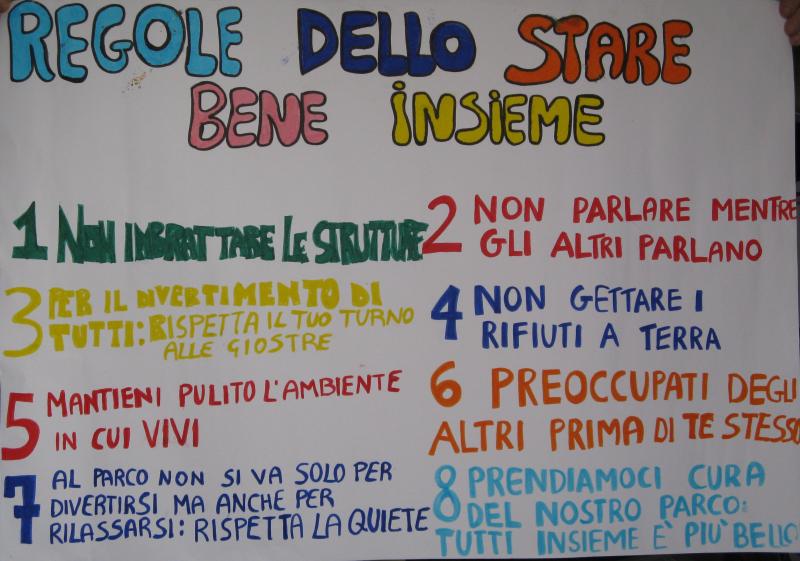 REGOLE DELLO STARE
BENE INSIEME
1 NON IMBRATTARE LE STRUTTURE
2 NON PARLARE MENTRE
GLI ALTRI PARLANO
3 PER IL DIVERTIMENTO DI
TUTTI: RISPETTA IL TUO TURNO
ALLE GIOSTRE
4 NON GETTARE I
RIFIUTI A TERRA
5 MANTIENI PULITO L'AMBIENTE
IN CUI VIVI
6 PREOCCUPATI DEGLI
ALTRI PRIMA DI TE STESSO
7 AL PARCO NON SI VA SOLO PER
DIVERTIRSI MA ANCHE PER
RILASSARSI: RISPETTA LA QUIETE
8 PRENDIAMOCI CURA
DEL NOSTRO PARCO:
TUTTI INSIEME È PIÙ BELLO